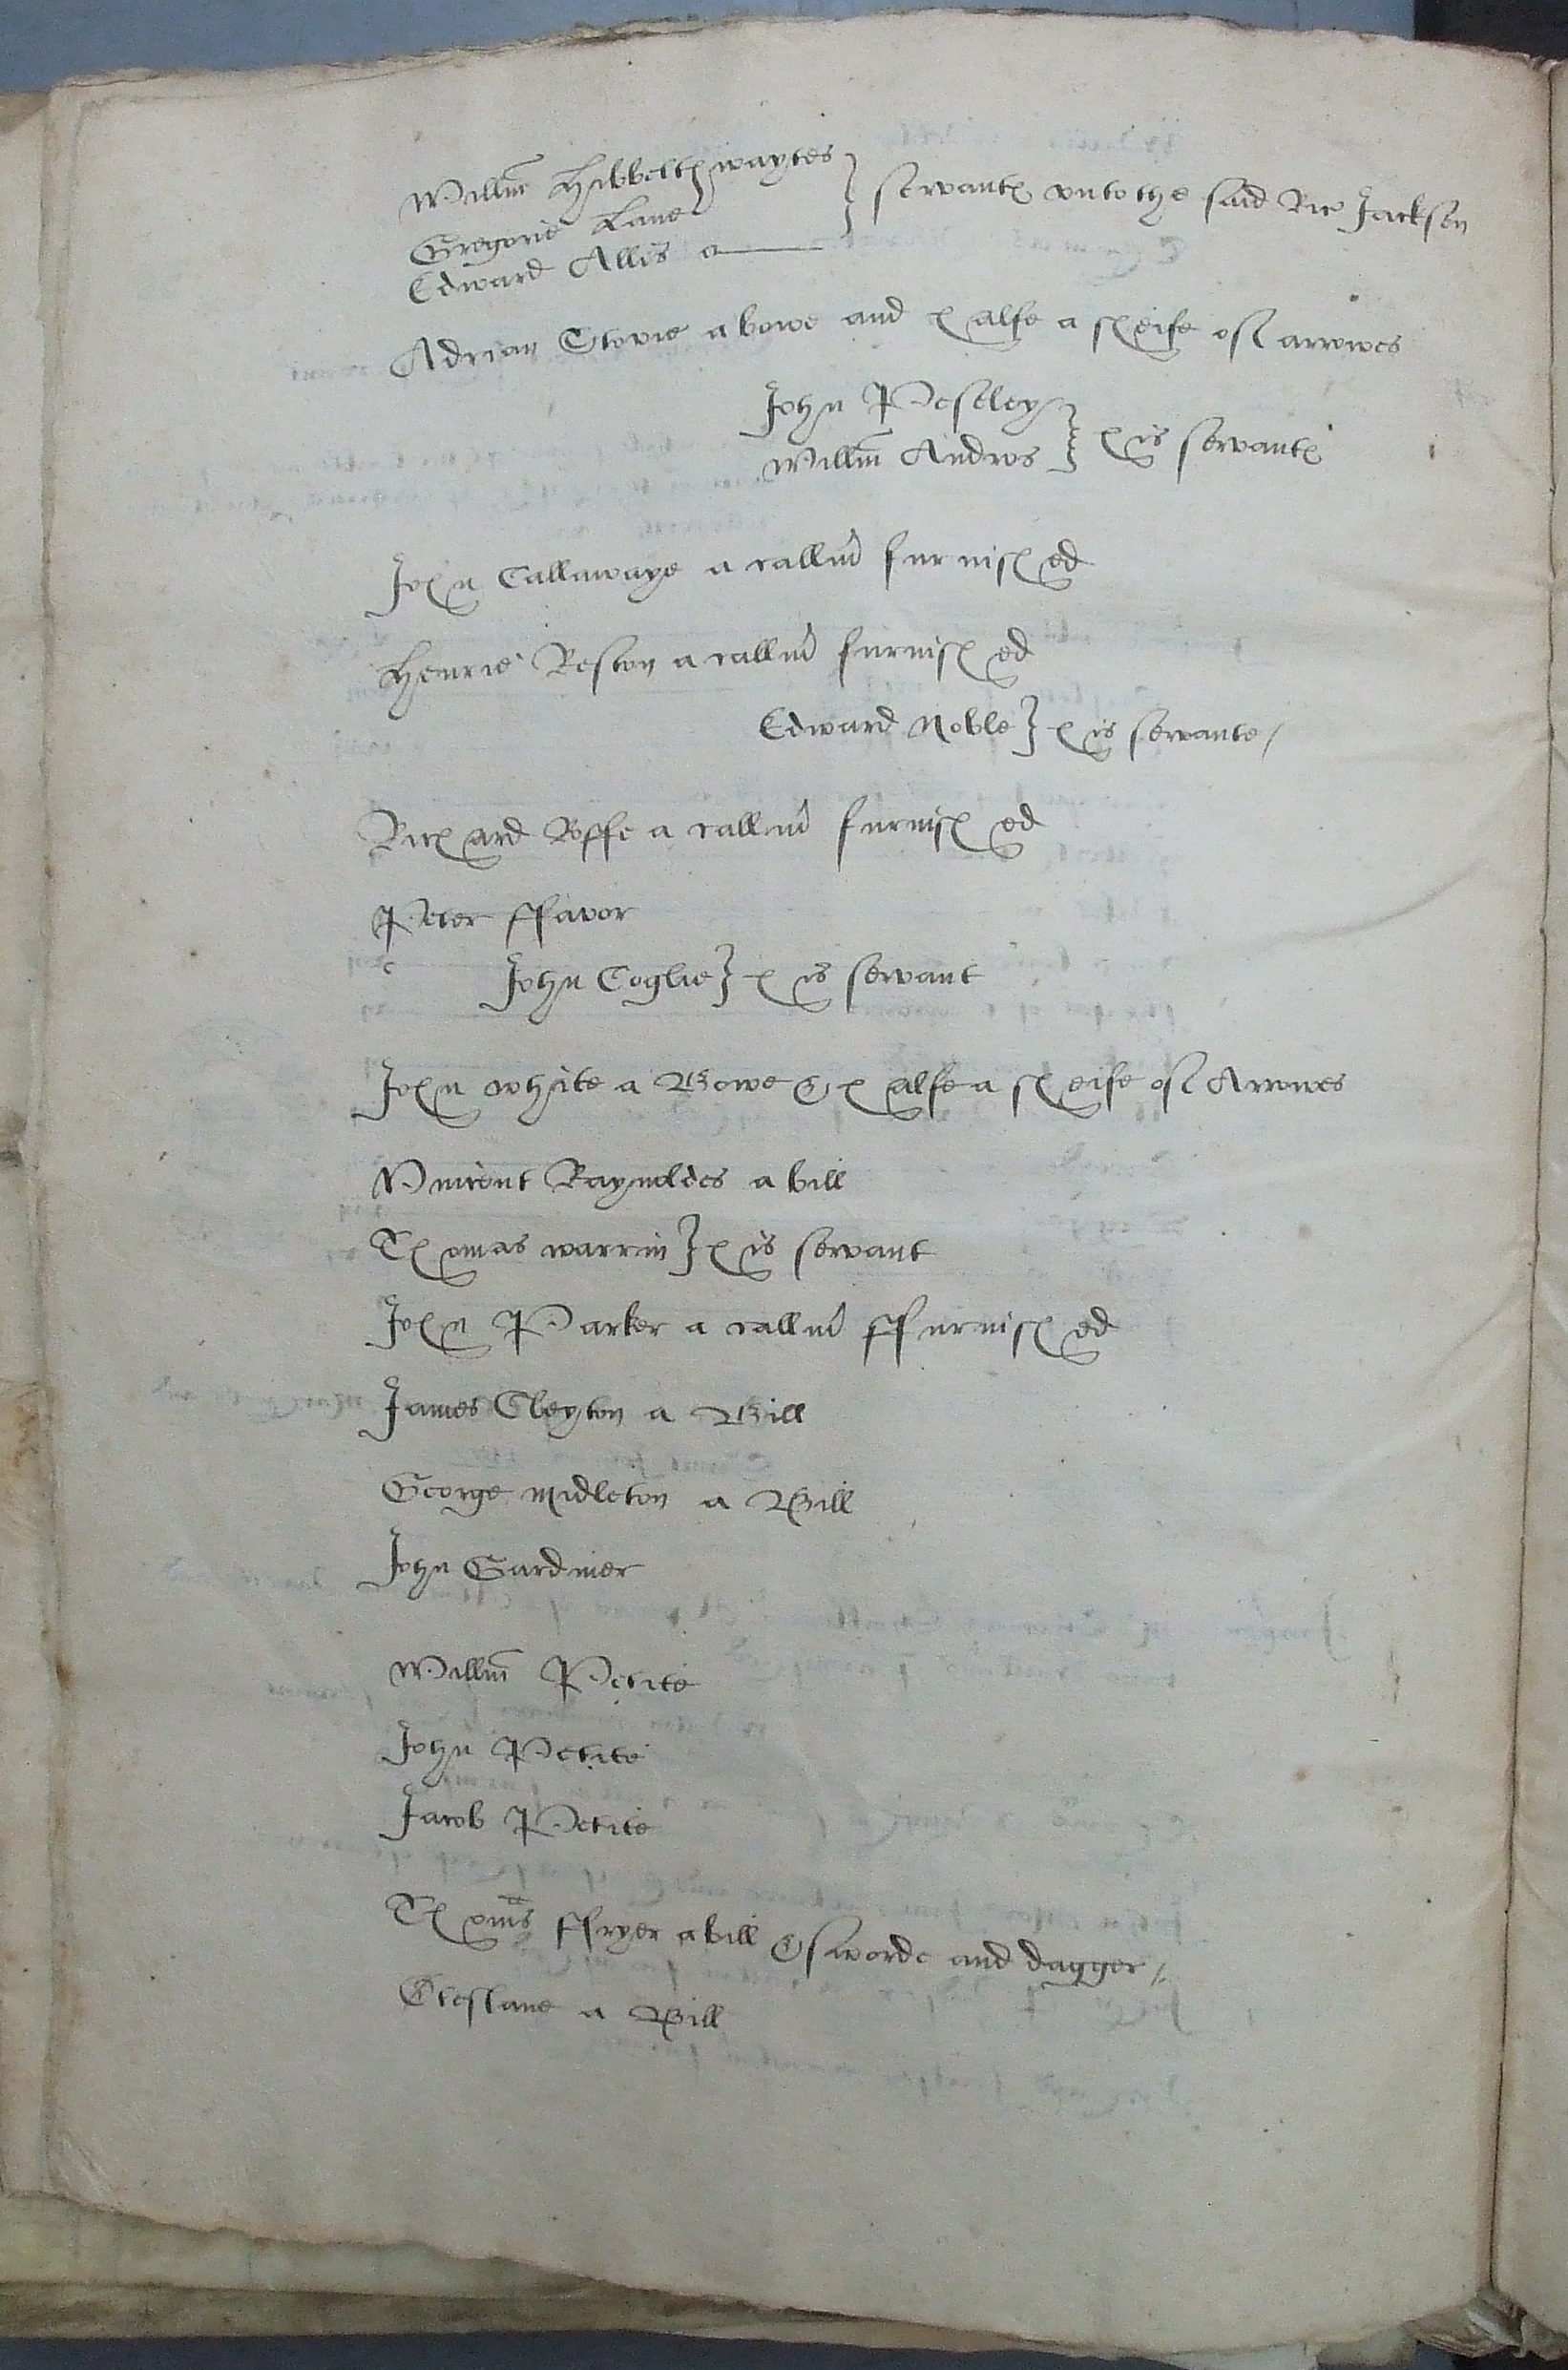 Willm Hibbelthwaytes
Gregorie Lane } servantes vnto the said Ric Jackson
Edward Allis a
Adrian Storie a bowe and halfe a sheife of arrowes
John Peseley
Willm Andros } his servantes
John Callawaye a callivr furnished
Henrie Beston a callivr furnished
Edward Noble } his servante /
Richard Roffe a callivr furnished
Peter ffavor
John Coglie } his servant
John white a Bowe & halfe a sheife of Arrowes
Vincent Raynoldes a bill
Thomas warrin } his servant
John Parker a callivr ffurnished
James Cleyton a Bill
George Midleton a Bill
John Gardiner
Willm Petite
John Petite
Jacob Petite
Thoms ffryer a bill & sworde and dagger /
a Bill